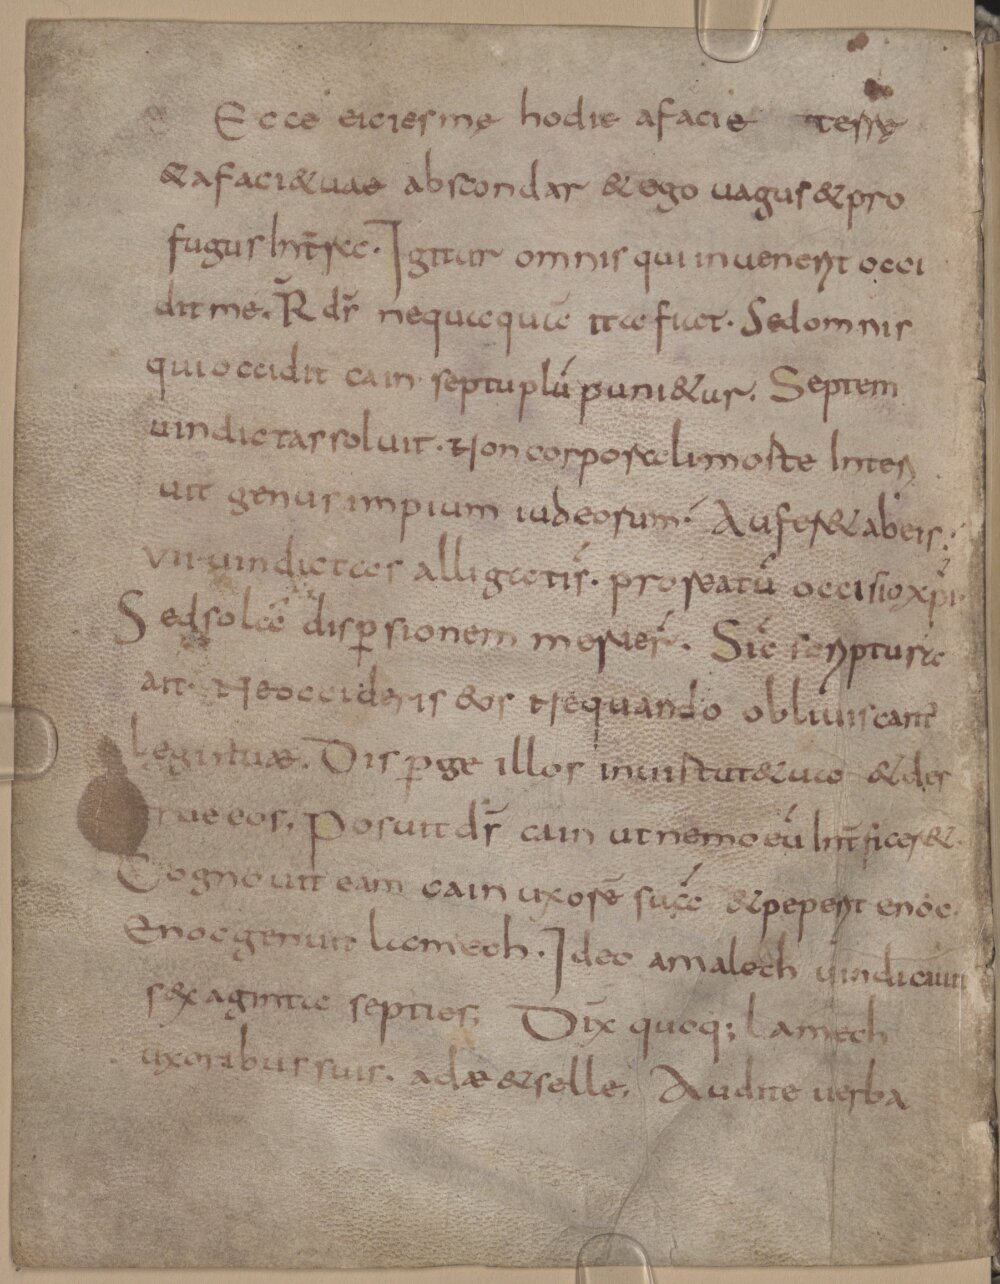 Ecce eicies me hodie afacie terre
&afaci&uae abscondar & ego uagus & pro
fugus Int̄ra. Igitur omnis qui inuenerit occi
dit me. R̄ d̄s nequaquā ita fiet. Sed omnis
qui occidit cain septuplū puni&ur. Septem
uindictas soluit. Non corporali morte Inter
iit genus impium iudeorum. Aufer& abeis;
VII uindictas alligatis. pro reatū occisio xp̄i.
Sed solā disp̱sionem meser̄. Sic scriptura
ait. Ne occideris eos Nequando obliuiscant̄
Legis tuæ. Disp̱ge illos inuirtut&ua & des
true eos. Posuit d̄s cain ut nemo eū Int̄ficer&.
Cognouit eam cain uxorē suā & peperit enoc.
Enoc genuit lamech. Ideo amalech uindicauit
sexaginta septies; Dix̄ quoq; lamech
uxoribus suis. adæ & selle. Audite uerba